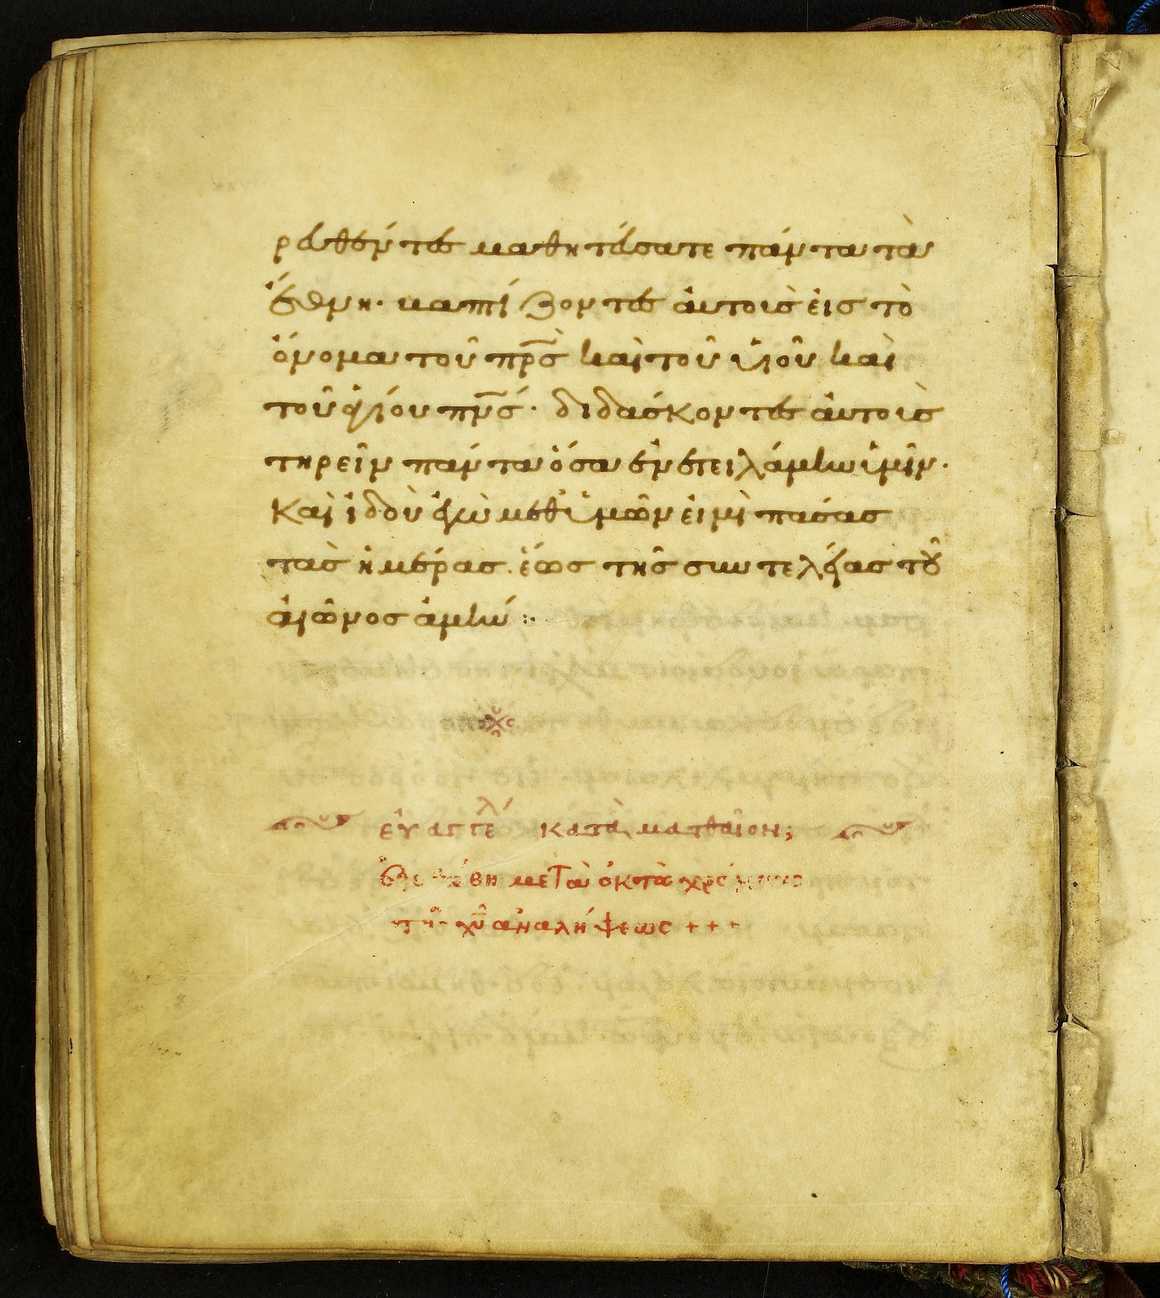 ρευθέντες μαθητεύσατε πάντα τὰ
ἔθνη· βαπτίζοντες ἀυτοὺς ἐις τὸ
ὄνομα τοῦ πρ̅ς̅ καὶ τοῦ ὑιοῦ καὶ
τοῦ ἁγίου πν̅ς̅· διδάσκοντες ἀυτοὺς
τηρεῖν πάντα ὅσα ἐνετειλάμην ὑμῖν·
Καὶ ἰδοὺ ἐγὼ μεθ ὑμῶν ἐιμὶ πάσας
τὰς ἡμέρας. ἕως τῆς συντελείας τοῦ
ἀιῶνος ἀμήν :·
ἐυαγγελ κατὰ ματθαῖον;
μετὰ ὀκτὼ
τῆς χ̅υ̅ ἀναλήψεως +++